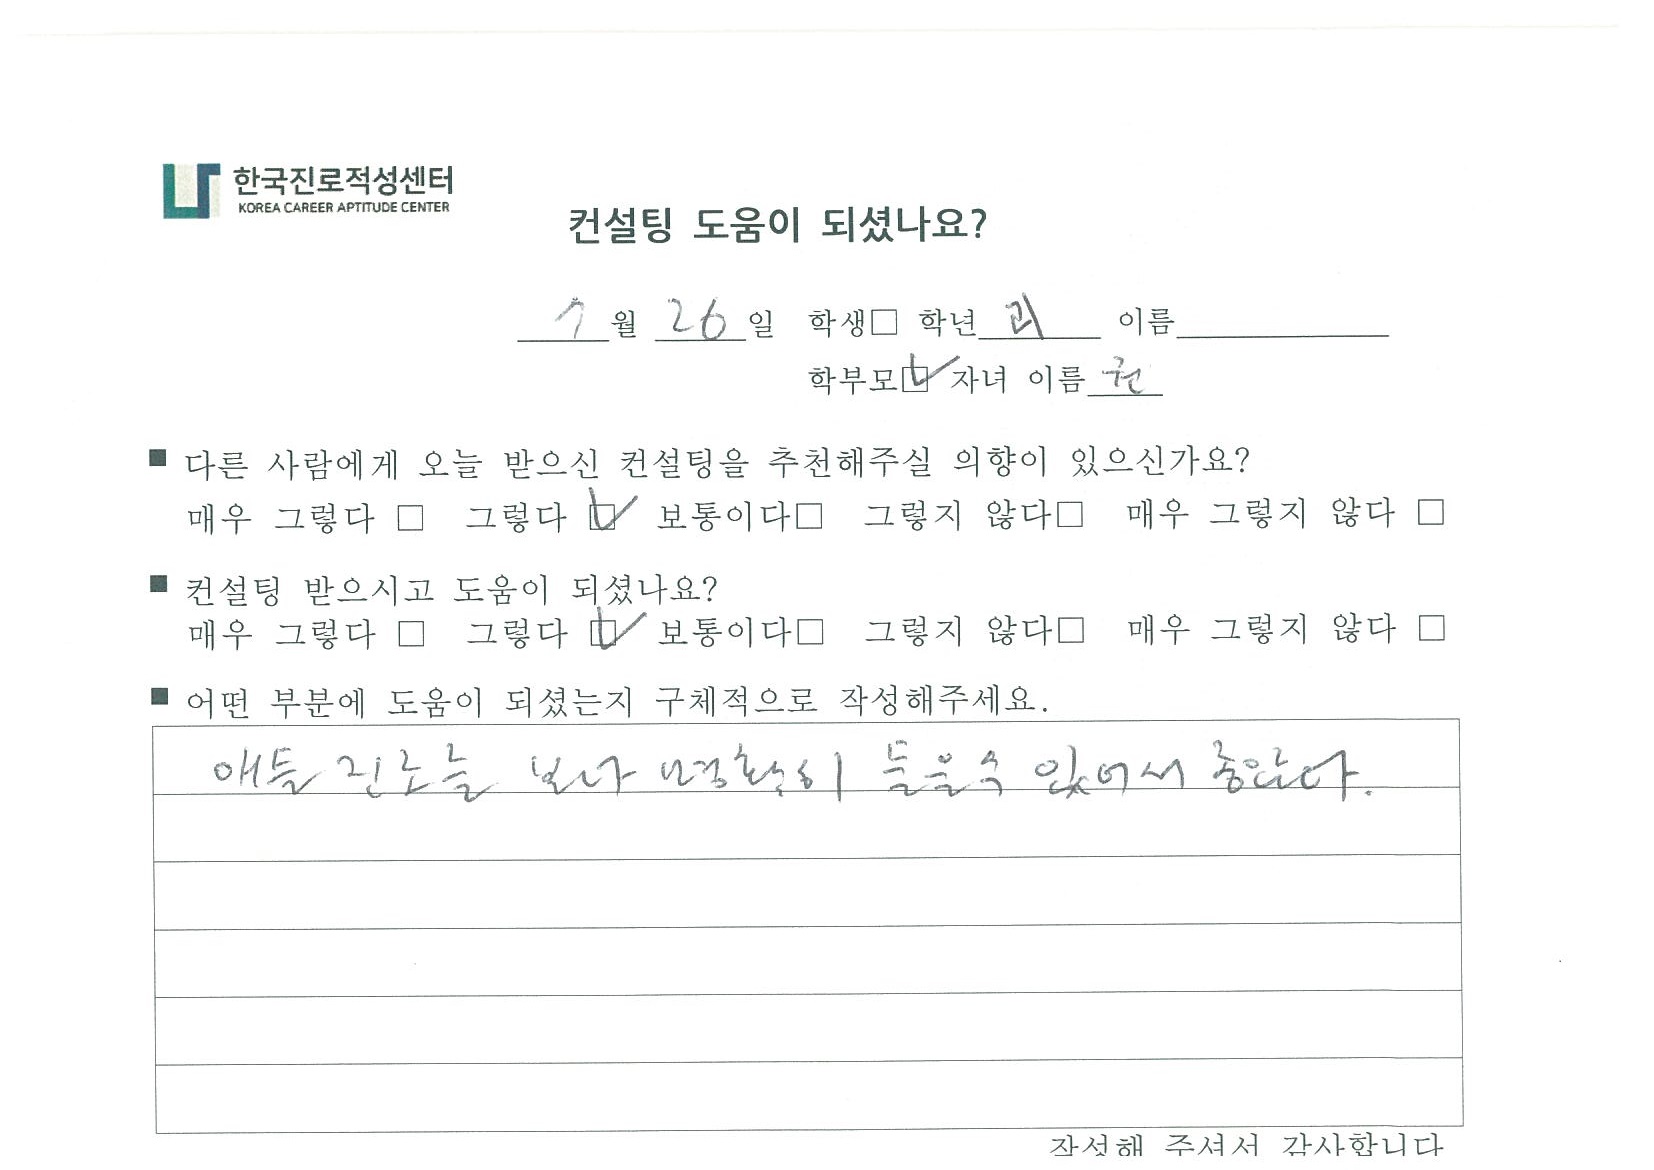 한국진로적성센터
KOREA CAREER APTITUDE CENTER
컨설팅 도움이 되셨나요?
7월 26일 학생□ 학년 이름
학부모☑ 자녀 이름 권
■ 다른 사람에게 오늘 받으신 컨설팅을 추천해주실 의향이 있으신가요?
매우 그렇다 □ 그렇다 ☑ 보통이다□ 그렇지 않다□ 매우 그렇지 않다 □
■ 컨설팅 받으시고 도움이 되셨나요?
매우 그렇다 □ 그렇다 ☑ 보통이다□ 그렇지 않다□ 매우 그렇지 않다 □
■ 어떤 부분에 도움이 되셨는지 구체적으로 작성해주세요.
애들 진로를 보다 명확히 들을수 있어서 좋았다.
작성해 주셔서 감사합니다